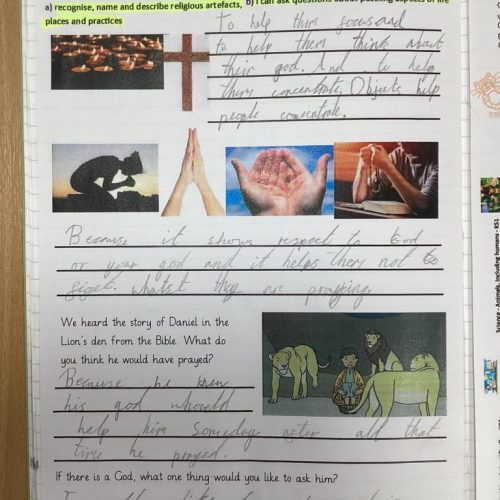 a) recognise, name and describe religious artefacts,
b) I can ask questions about puzzling aspects of life
places and practices
To help them focus and
to help them think about
their god. And to help
them concentrate, Objects help
people concentrate.
Because it shows respect to God
or your god and it helps them not to
figet. whatst they are praying.
We heard the story of Daniel in the
Lion's den from the Bible. What do
you think he would have prayed?
Because he knew
his god whould
help him someday after all that
time he prayed.
If there is a God, what one thing would you like to ask him?
Science - Animals, including humans - KS1